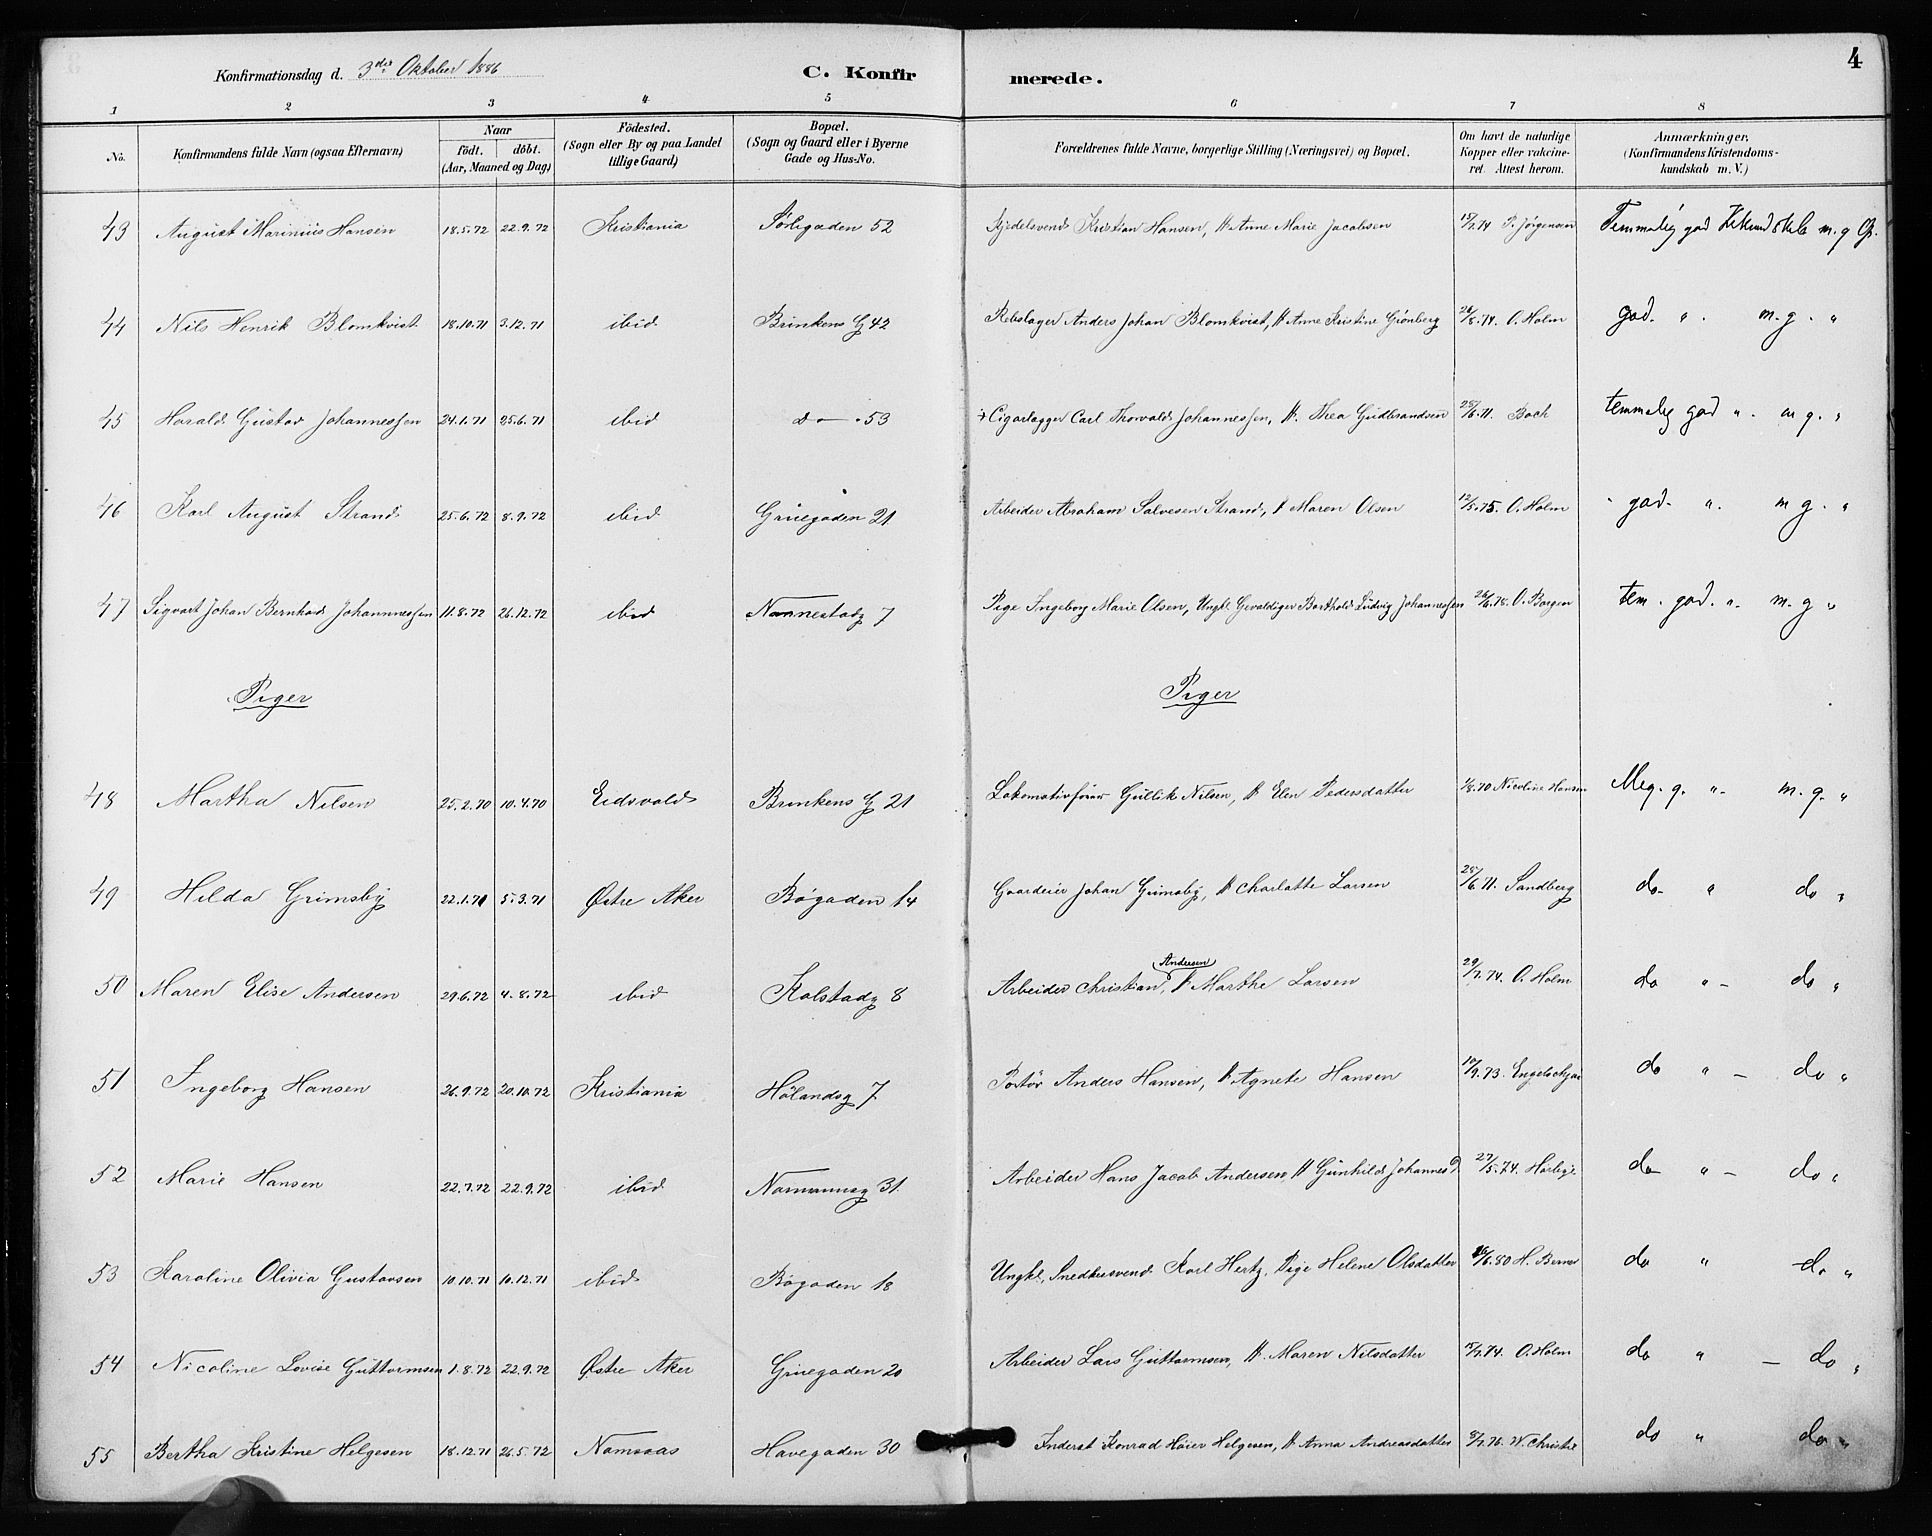 4
Konfirmationsdag d. 3die Oktober 1886 C. Konfirmerede.
1 2 3 4 5 6 7 8
No. Konfirmandens fulde Navn (ogsaa Efternavn) Naar födt. döbt. (Aar, Maaned og Dag) Födested. (Sogn eller By og paa Landet tillige Gaard) Bopæl. (Sogn og Gaard eller i Byerne Gade og Hus-No. Forældrenes fulde Navne, borgerlige Stilling (Næringsvei) og Bopæl. Om havt de naturlige Kopper eller vakcineret. Attest herom. Anmærkninger, (Konfirmandens Kristendomskundskab m. V.)
43 August Marinius Hansen 18.5.72 22.9.72 Kristiania Sørligaden 52 Kristian Hansen, H. Anne Marie Jacobsen 15/7.74 P. Jørgensen Temmelig god m. g
44 Nils Henrik Blomkvist 18.10.71 3.12.71 ibid Brinkens G 42 Rebslager Anders Johan Blomkvist, H Anne Kristine Grönberg 26/8.74. O. Holm god. " . m. g. "
45 Harald Gustav Johannessen 24.1.71 25.6.71 ibid do - 53 + Cigarlagger Carl Thorvald Johannessen, H. Thea Gudbrandsen 28/6.71. Bock temmelig god ". m g. "
46 Karl August Strand 25.6.72 8.9.72 ibid Grüegaden 21 Arbeider Abraham Salvesen Strand, H Maren Olsen 12/5.75. O. Holm god. ". m g. "
47 Sigvart Johan Bernhard Johannnessen 11.8.72 26.12.72 ibid Nannestadg 7 Pige Ingeborg Marie Olsen, Ungkl. Gevaldiger Barthold Ludvig Johannessen 26/6.78. O. Borgen tem. god. ". m. g "
Piger Piger
48 Martha Nilsen 25.2.70 10.4.70 Eidsvold Brinkens G 21 Lokomotivfører Gullik Nilsen, H Elen Pedersdatter 1/8.70 Nicoline Hansen Meg. g. ". m. g. "
49 Hilda Grimsby 22.1.71 5.3.71 Østre Aker Bøgaden 14 Gaardeier Johan Grimsby, H Charlotte Larsen 28/6.71. Sandberg do " do "
50 Maren Elise Andersen 29.6.72 4.8.72 ibid Kolstadg 8 Arbeider Christian Andersen, H Marthe Larsen 29/7.74. O. Holm do " - do "
51 Ingeborg Hansen 26.9.72 20.10.72 Kristiania Hölandsg 7 Portör Anders Hansen, H. Agnete Hansen 10/9.73. do " - do "
52 Marie Hansen 22.7.72 22.9.72 ibid Normannsg 31. Arbeider Hans Jacob Andersen, H Gunhild Johannesd 27/5.74. do " - do "
53 Karoline Olivia Gustavsen 10.10.71 10.12.71 ibid Bøgaden 18 Ungkl. Snedkersvend Karl Hertz, Pige Helene Olsdatter /6.80 H. Berner do " do "
54 Nicoline Lovise Guttormsen 1.8.72 22.9.72 Østre Aker Grüegaden 20 Arbeider Lars Guttormsen, H. Maren Nilsdatter 15/7.74. O. Holm do " - do "
55 Bertha Kristine Helgesen 18.12.71 26.5.72 Namsaas Havegaden 30 Inderst Konrad Höier Helgesen, H Anna Andreasdatter 8/7.76. W. Christie do " do "